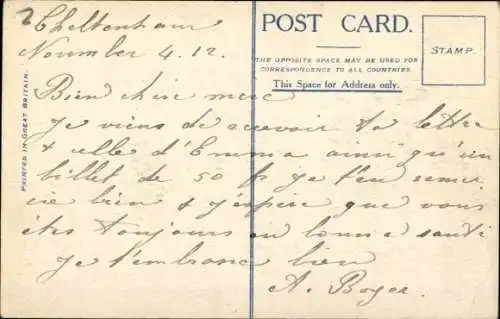 Cheltenham
November 4. 12.
POST CARD.
THE OPPOSITE SPACE MAY BE USED FOR
CORRESPONDENCE TO ALL COUNTRIES.
This Space for Address only.
STAMP.
PRINTED IN GREAT BRITAIN.
Bien chère mere
Je viens de recevoir ta lettre
& celle d'Emma ainsi qu'un
billet de 50 f je t'en remer
cie bien & j'espère que vous
êtes toujours en bonne santé
Je t'embrasse bien
A. Boyer